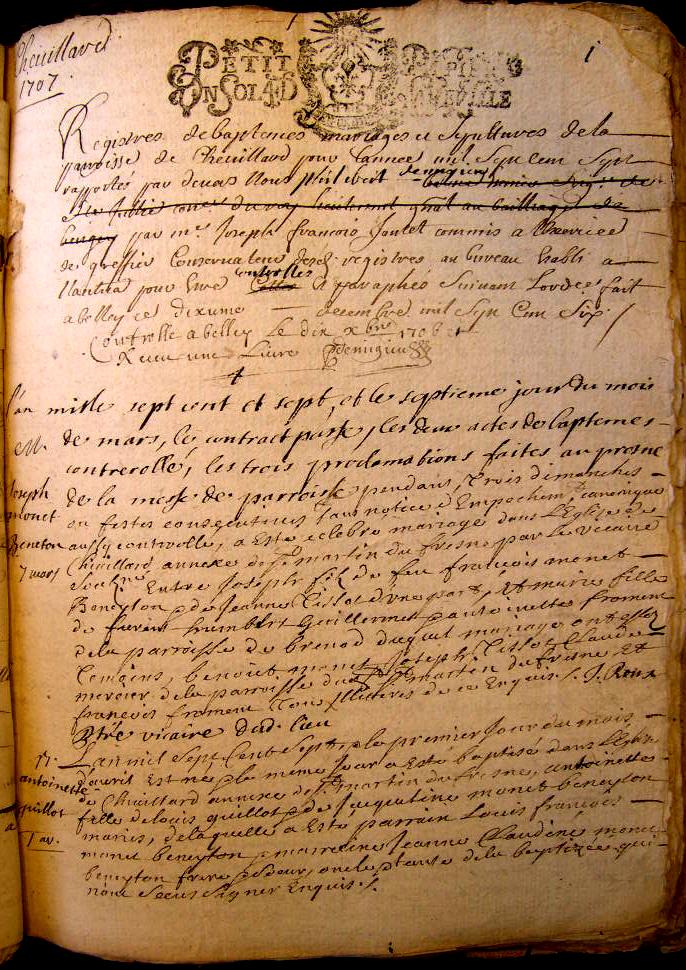 Cheuillard
1707
PETIT PAPIER
UN SOL 4 D
1
Registres de baptemes mariages et sepultures de la
parroisse de Cheuillard pour l'annee mil sept cent sept
rapportés par deuant Nous
bugey par me Joseph françois Joutet commis a l'exercice
de greffier Conseruateur desd registres au bureau establi a
Nantua pour estre controllés et paraphés suiuant l'ord fait
a belley ce dixieme decembre mil sept cent six
Controllé a belley le dix xbre 1706 et
Receu une Liure
L'an mille sept cent et sept, et le septieme jour du mois
M. de mars, le contract passé, les deux actes de baptemes
controrollé, les trois proclamations faites au prosne
Joseph de la messe de parroisse pendant trois dimanches
monet ou festes consequtiues sans notice d'Empechemt canonique
Beneton aussy controllé, a esté celebré mariage dans l'Eglise de
7 mars Chuillard annexe de St martin du fresne par le vicaire
Entre Joseph fils de feu françois monet
Beneyton et de Jeanne Tissot d'une part, et marie fille
de fuent humbert Guillermet et antoinette froment
de la parroisse de brenod duquel mariage ont estez
temoins, benoit monet Joseph Tissot Claude
mercier de la parroisse dud St martin du frene, et
françois froment tous Illiteres de ce Enquis. J. Roux
Ptre vicaire dud. lieu
L'an mil sept Cent sept, et le premier Jour du mois
antoinette d'auril Est née et le meme Jour a Esté baptisée dans l'Eglise
guillot de Chuillard annexe de St martin du fresne, antoinette
1 av. fille de louis guillot et de Jacqueline monet beneyton
mariés, de laquelle a Esté parrain Louis françois
monet beneyton et marreine Jeanne Claudine monet
beneyton frere et soeur, oncle et tante de la baptizée qui
n'ont sceus signer Enquis.